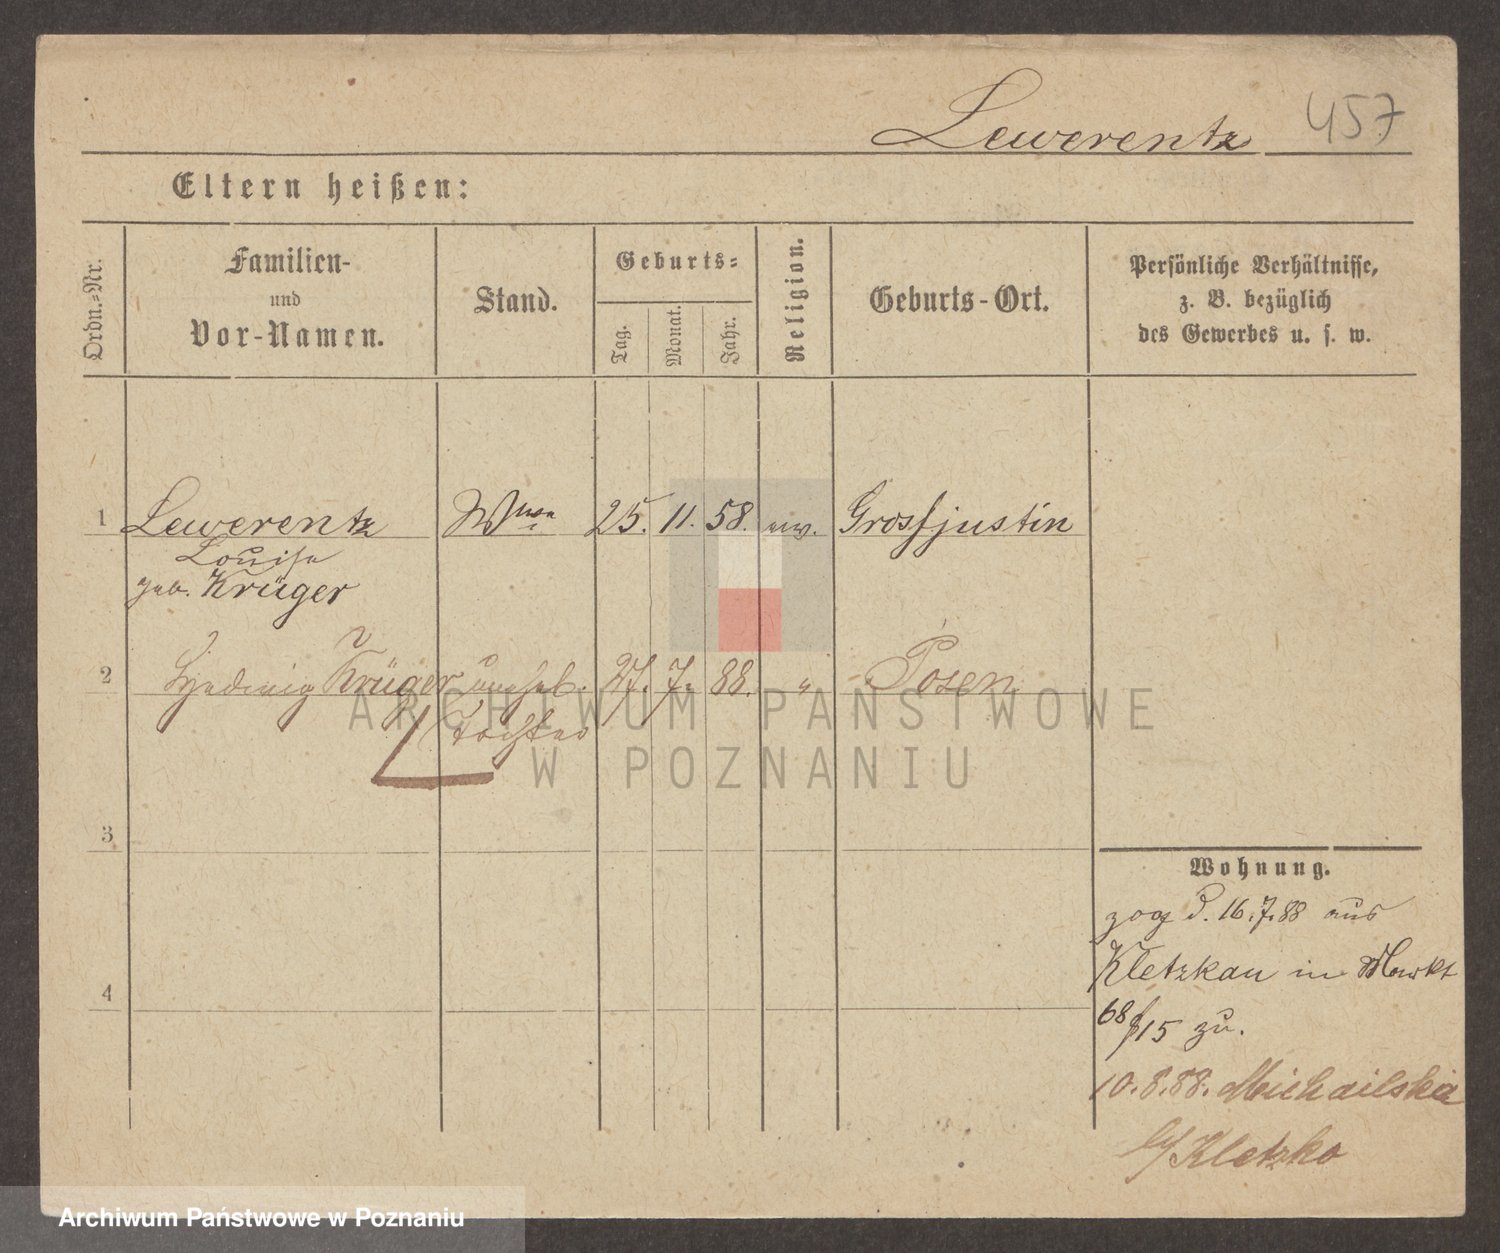 Lewerentz 457
Eltern heißen:
Ordn.=Nr.
Familien-
und
Vor-Namen.
Stand.
Geburts=
Tag.
Monat.
Jahr.
Religion.
Geburts-Ort.
Persönliche Verhältnisse,
z. B. bezüglich
des Gewerbes u. s. w.
1 Lewerentz Wwe 25. 11. 58. ew. Grossjustin
Louise
geb. Krüger
2 Hedwig Krüger unehel. 27. 7. 88. " Posen
Tochter
3
4
Wohnung.
zog d. 16.7.88 aus
Kletzkau in Markt
68/15 zu.
10.8.88. Michailska
Kletzko
ARCHIWUM PAŃSTWOWE
W POZNANIU
Archiwum Państwowe w Poznaniu